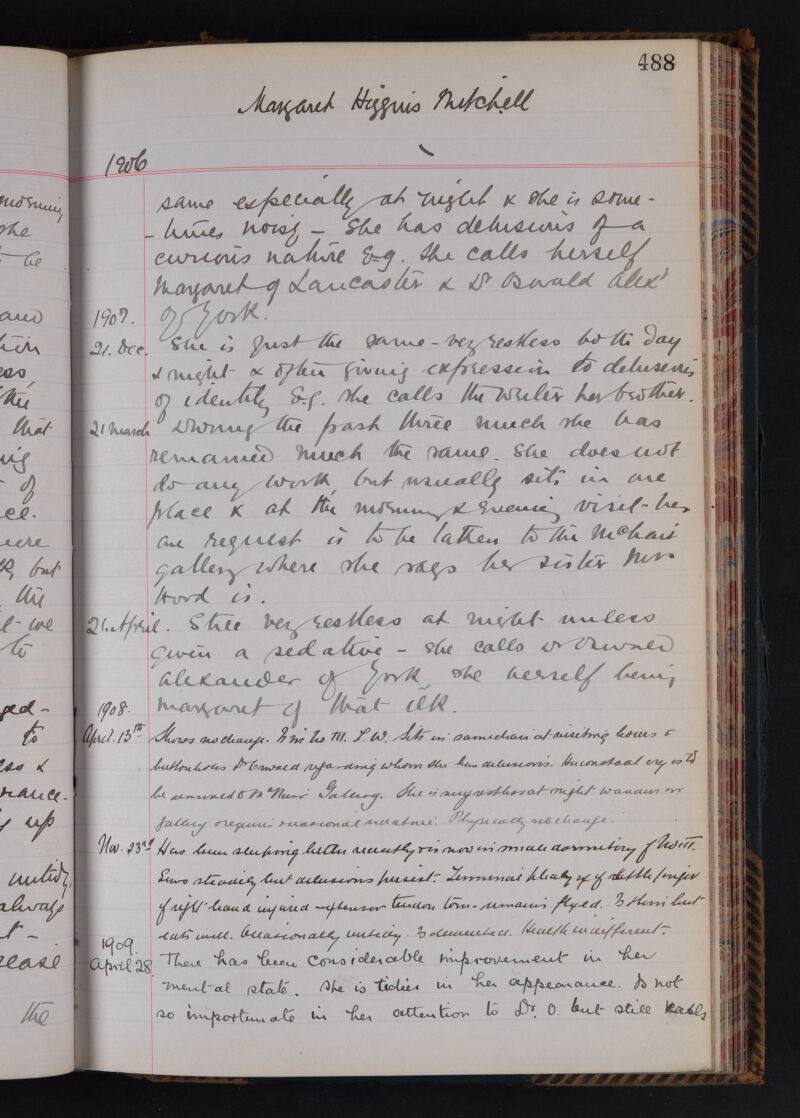 morning
she
be
and
that
of
ce.
were
but
the
we
to
ged-
to
&
up
untidy,
always
ease
the
488
Margaret Higgins Mitchell
1906
same especially at night & she is some-
-times noisy - She has delusions of a
curious nature E-g. she calls herself
Margaret of Lancaster & Dr Oswald Alexr
1907. of York.
21. Dec. She is just the same - very restless both day
& night & often giving expression to delusions
of identity E.g. she calls the writer her brother.
21 March During the past three much she has
remained much the same. She does not
do any work, but usually sits in one
place & at the morning & evening visit - her
one request is to be taken to the McNair
gallery where she says her sister Mrs
Wood is.
21. April. Still very restless at night unless
given a sedative - she calls Dr Oswald
Alexander of York, she herself being
1908. Margaret of that ilk.
April. 13th Shows no change. Is in No III. L.W. Sits in same chair at visiting hours &
buttonholes Dr Oswald regarding whom she has delusions. Her constant cry is to
be removed to McNair Gallery. She is very restless at night wanders in
gallery & requires occasional sedative. Physically no change.
Nov. 23rd Has been sleeping better recently & is now in small dormitory of No III.
Sews steadily but delusions persist. Terminal phalanx of little finger
of right hand injured - extensor tendon torn - remains flexed. Is thin but
eats well. Occasionally untidy. Is demented. Health indifferent.
1909.
April 28. There has been considerable improvement in her
mental state. She is tidier in her appearance. Is not
so importunate in her attention to Dr. O. but still